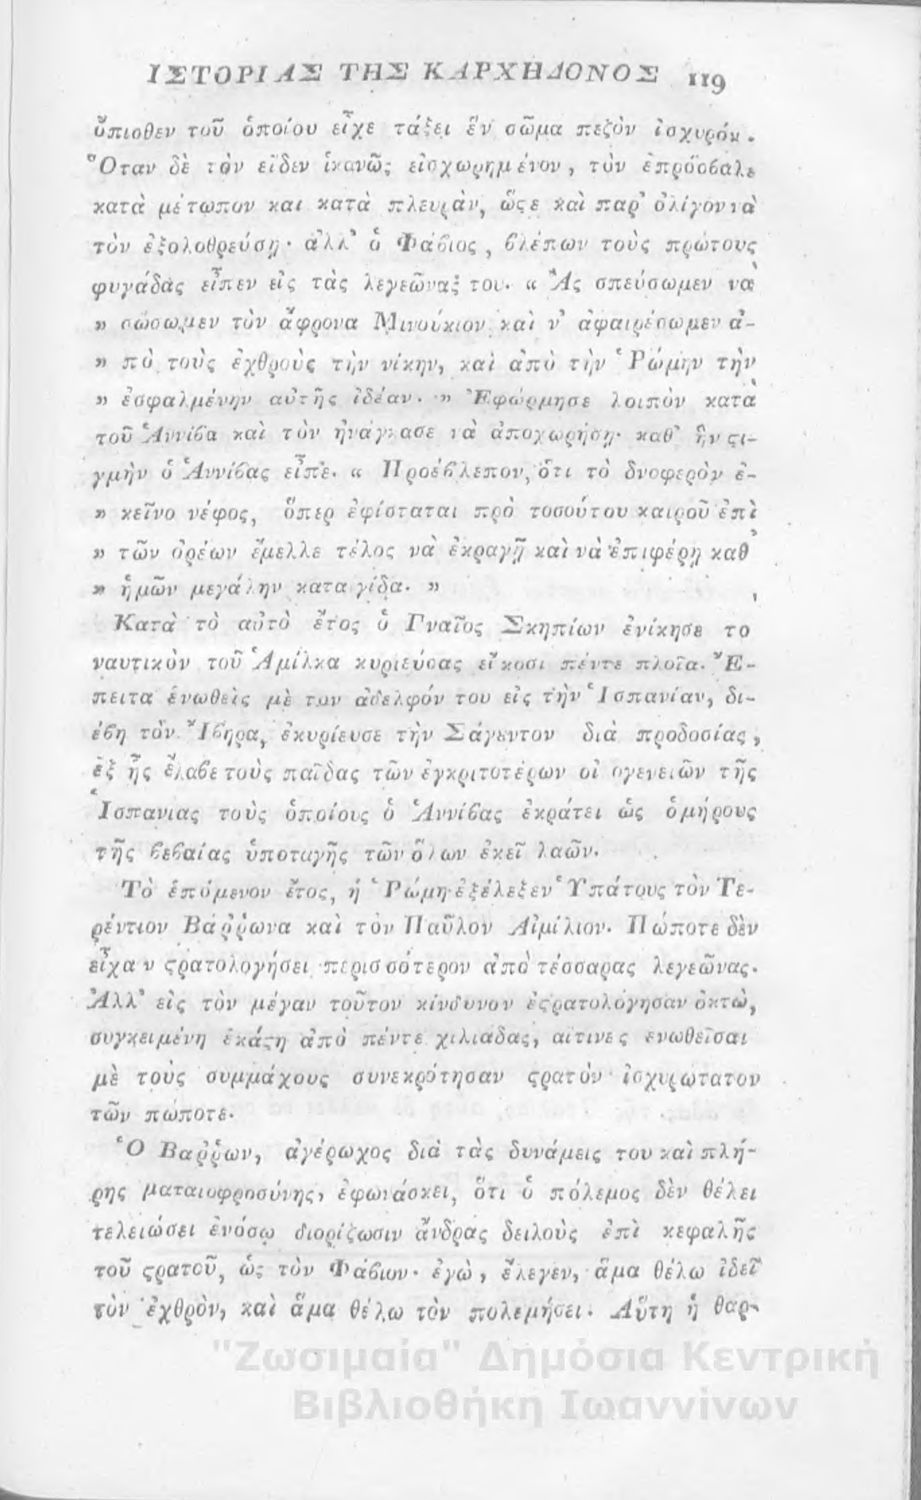 ΙΣΤΟΡΙΑΣ ΤΗΣ ΚΑΡΧΗΔΟΝΟΣ 119
ὄπισθεν τοῦ ὁποίου εἶχε τάξει ἓν σῶμα πεζὸν ἰσχυρόν.
Ὅταν δὲ τὸν εἶδεν ἱκανῶς εἰσχωρημένον, τὸν ἐπρόσβαλε
κατὰ μέτωπον καὶ κατὰ πλευρὰν, ὥςε καὶ παρ' ὀλίγον νὰ
τὸν ἐξολοθρεύσῃ· ἀλλ' ὁ Φάβιος, βλέπων τοὺς πρώτους
φυγάδας εἶπεν εἰς τὰς λεγεῶνας του· « Ἂς σπεύσωμεν νὰ
» σώσωμεν τὸν ἄφρονα Μινούκιον καὶ ν' ἀφαιρέσωμεν ἀ-
» πὸ τοὺς ἐχθροὺς τὴν νίκην, καὶ ἀπὸ τὴν Ῥώμην τὴν
» ἐσφαλμένην αὐτῆς ἰδέαν. » Ἐφώρμησε λοιπὸν κατὰ
τοῦ Ἀννίβα καὶ τὸν ἠνάγκασε νὰ ἀποχωρήσῃ· καθ' ἣν ςι-
γμὴν ὁ Ἀννίβας εἶπε· « Προέβλεπον, ὅτι τὸ δνοφερὸν ἐ-
» κεῖνο νέφος, ὅπερ ἐφίσταται πρὸ τοσούτου καιροῦ ἐπὶ
» τῶν ὀρέων ἔμελλε τέλος νὰ ἐκραγῇ καὶ νὰ ἐπιφέρῃ καθ'
» ἡμῶν μεγάλην καταγίδα. »
Κατὰ τὸ αὐτὸ ἔτος ὁ Γναῖος Σκηπίων ἐνίκησε το
ναυτικὸν τοῦ Ἀμίλκα κυριεύσας εἴκοσι πέντε πλοῖα. Ἔ-
πειτα ἑνωθεὶς μὲ τὸν ἀδελφόν του εἰς τὴν Ἱσπανίαν, δι-
έβη τὸν Ἴβηρα, ἐκυρίευσε τὴν Σάγυντον διὰ προδοσίας,
ἐξ ἧς ἔλαβε τοὺς παῖδας τῶν ἐγκριτοτέρων οἰκογενειῶν τῆς
Ἱσπανίας τοὺς ὁποίους ὁ Ἀννίβας ἐκράτει ὡς ὁμήρους
τῆς βεβαίας ὑποταγῆς τῶν ὅλων ἐκεῖ λαῶν.
Τὸ ἑπόμενον ἔτος, ἡ Ῥώμη ἐξέλεξεν Ὑπάτους τὸν Τε-
ρέντιον Βάῤῥωνα καὶ τὸν Παῦλον Αἰμίλιον. Πώποτε δὲν
εἶχαν ςρατολογήσει περισσότερον ἀπὸ τέσσαρας λεγεῶνας.
Ἀλλ' εἰς τὸν μέγαν τοῦτον κίνδυνον ἐςρατολόγησαν ὀκτὼ,
συγκειμένη ἑκάςη ἀπὸ πέντε χιλιάδας, αἵτινες ἑνωθεῖσαι
μὲ τοὺς συμμάχους συνεκρότησαν ςρατὸν ἰσχυρώτατον
τῶν πώποτε.
Ὁ Βαῤῥων, ἀγέρωχος διὰ τὰς δυνάμεις του καὶ πλή-
ρης ματαιοφροσύνης, ἐφωνάσκει, ὅτι ὁ πόλεμος δὲν θέλει
τελειώσει ἐνόσῳ διορίζωσιν ἄνδρας δειλοὺς ἐπὶ κεφαλῆς
τοῦ ςρατοῦ, ὡς τὸν Φάβιον· ἐγὼ, ἔλεγεν, ἅμα θέλω ἰδεῖ
τὸν ἐχθρὸν, καὶ ἅμα θέλω τὸν πολεμήσει. Αὕτη ἡ θαρ-
"Ζωσιμαία" Δημόσια Κεντρική
Βιβλιοθήκη Ιωαννίνων